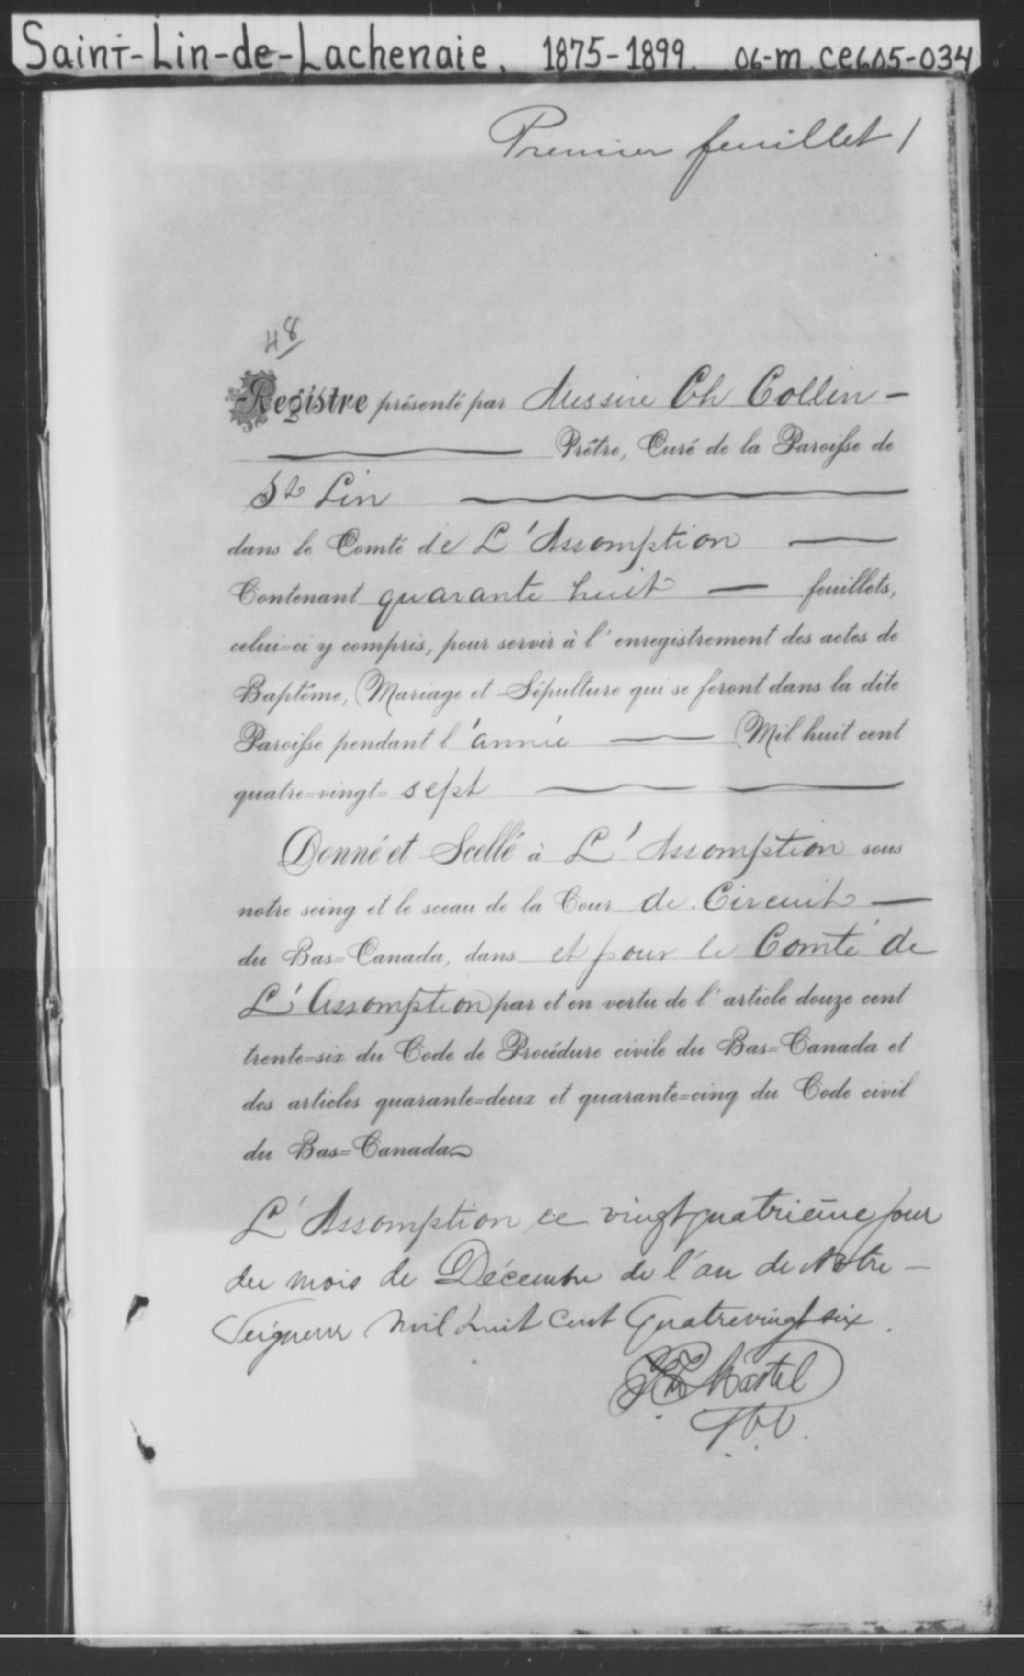 Saint-Lin-de-Lachenaie. 1875-1899. 06-m. ce605-034
Premier feuillet 1
48
Registre présenté par Messire Ch Collin —
Prêtre, Curé de la Paroisse de
St Lin
dans le Comté de L'Assomption —
Contenant quarante huit — feuillets,
celui=ci y compris, pour servir à l'enregistrement des actes de
Baptême, Mariage et Sépulture qui se feront dans la dite
Paroisse pendant l'année — Mil huit cent
quatre=vingt= sept
Donné et Scellé à L'Assomption sous
notre seing et le sceau de la Cour de Circuit —
du Bas=Canada, dans et pour le Comté de
L'Assomption par et en vertu de l'article douze cent
trente=six du Code de Procédure civile du Bas=Canada et
des articles quarante=deux et quarante=cinq du Code civil
du Bas=Canada
L'Assomption ce vingt quatrième jour
du mois de Décembre de l'an de Notre —
Seigneur Mil huit cent Quatrevingt six.
Martel